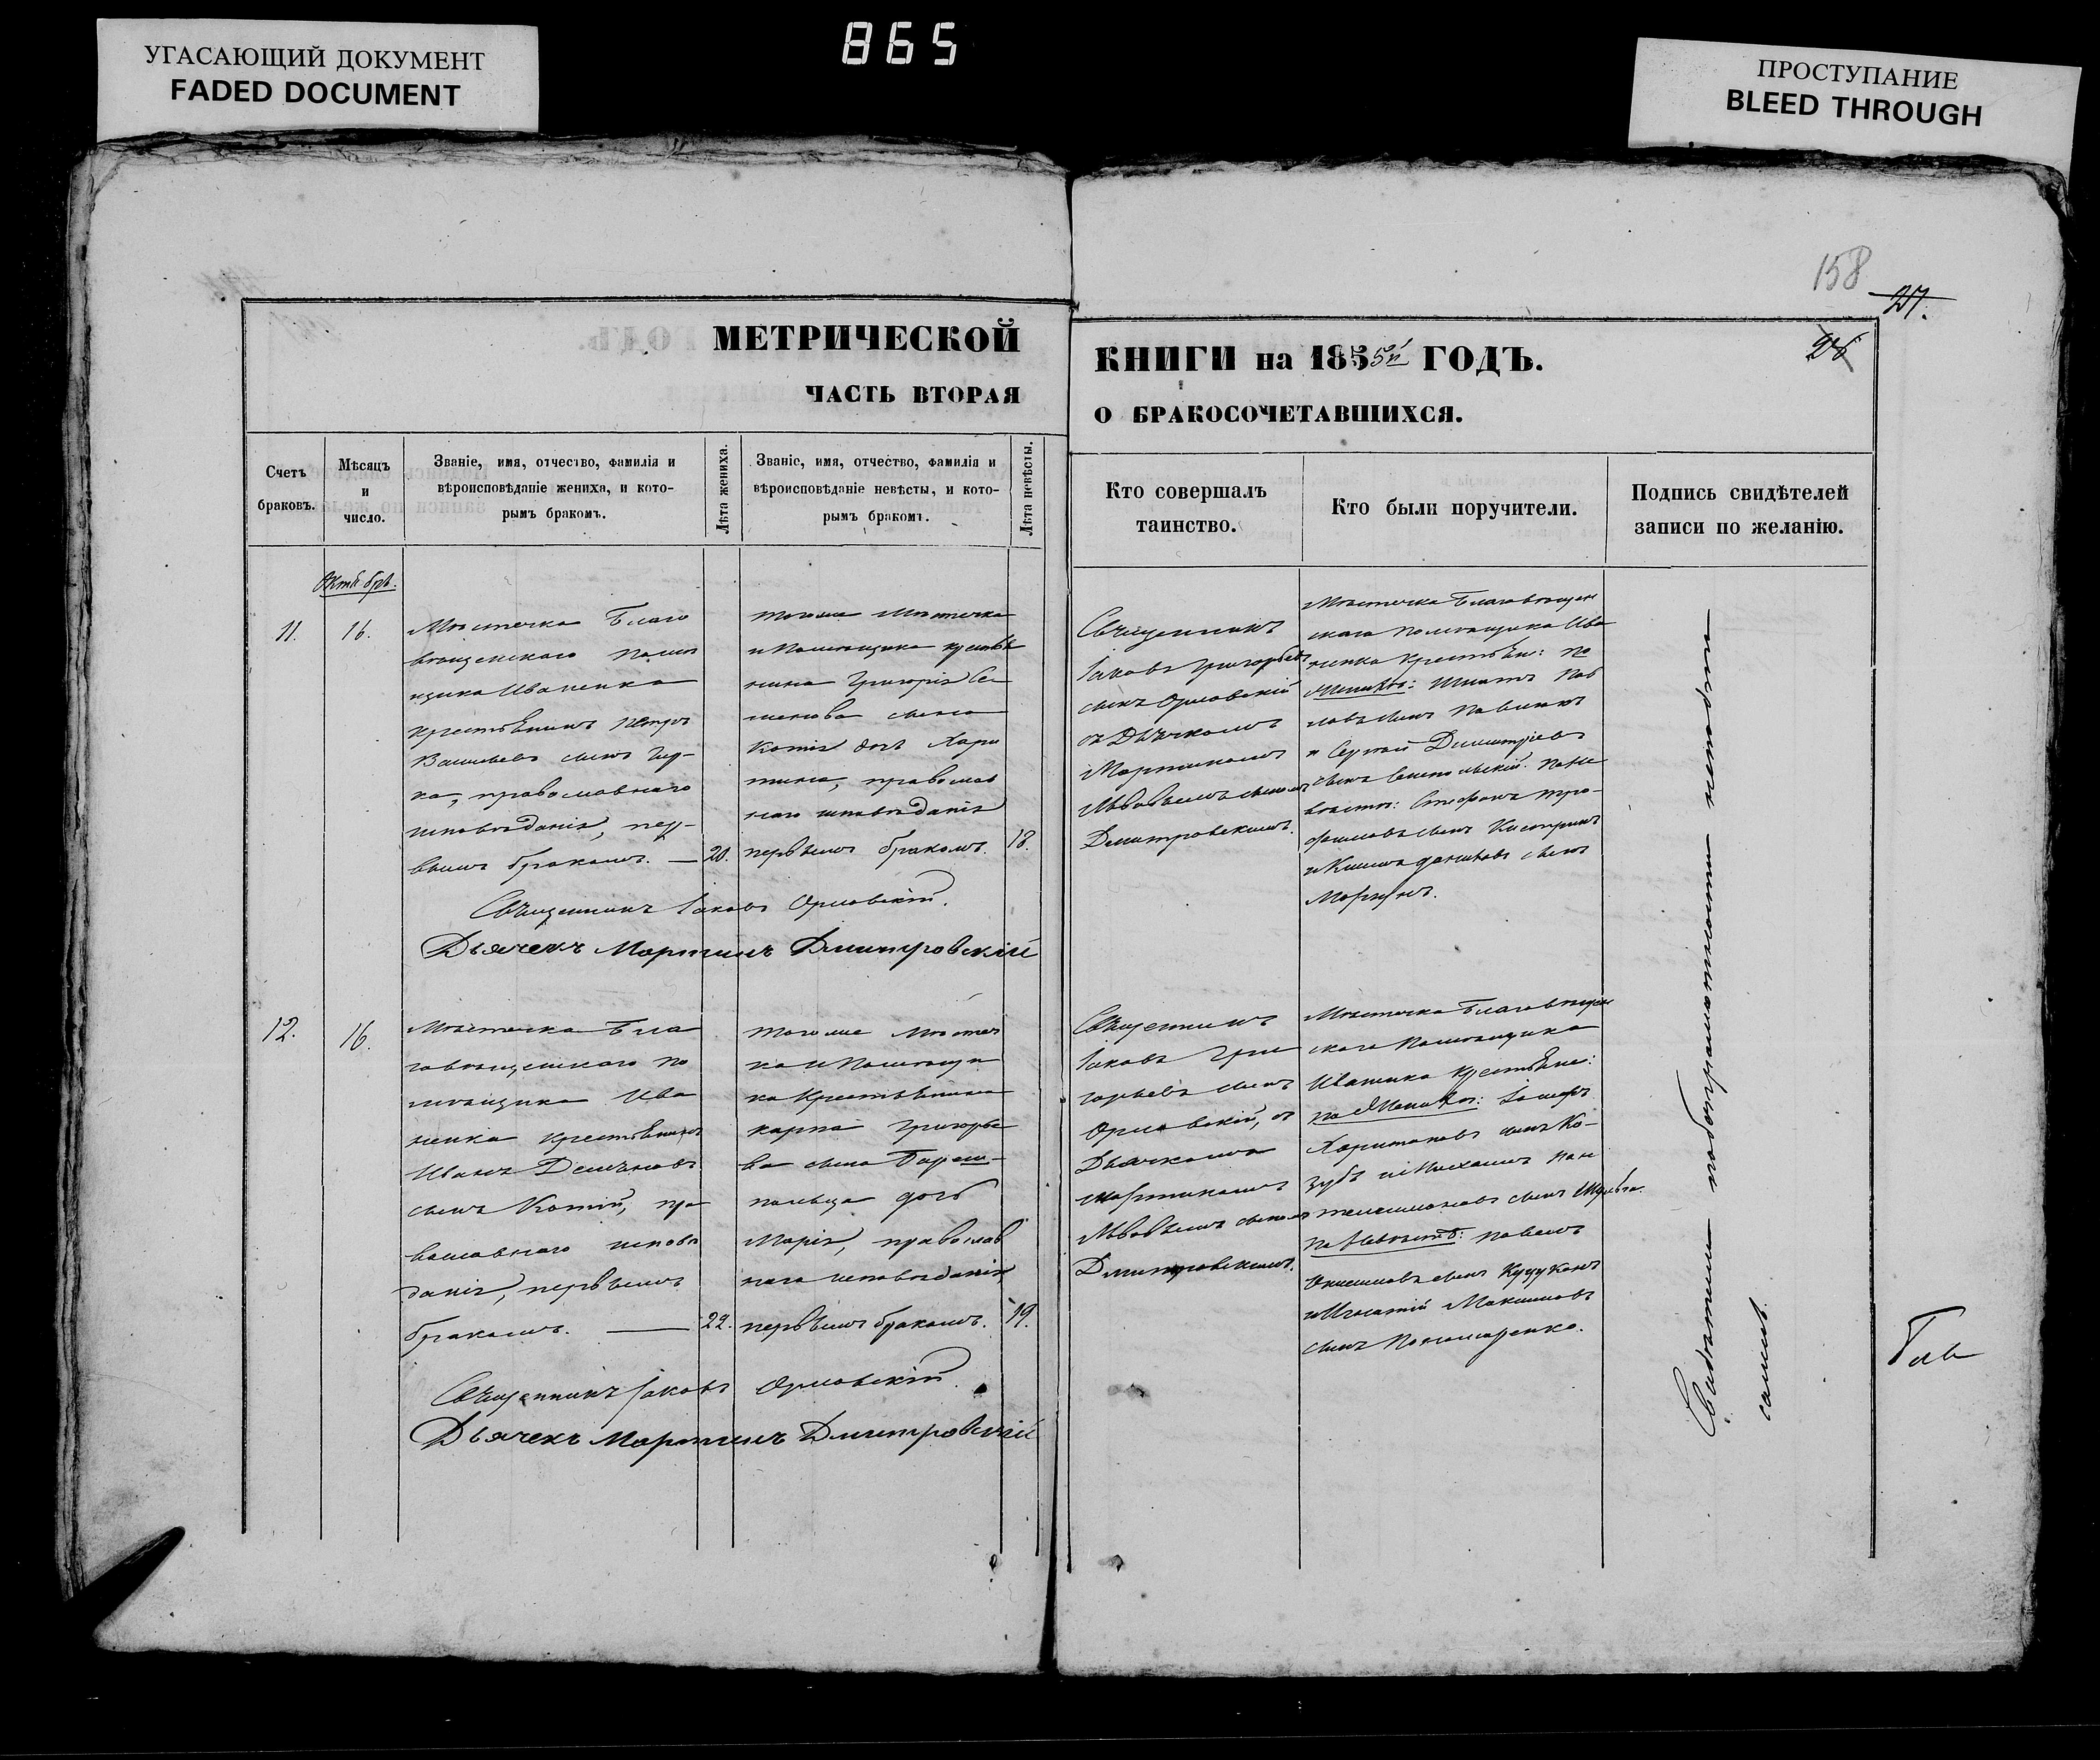 УГАСАЮЩИЙ ДОКУМЕНТ
FADED DOCUMENT
865
ПРОСТУПАНИЕ
BLEED THROUGH
158
27.
26
МЕТРИЧЕСКОЙ
ЧАСТЬ ВТОРАЯ
КНИГИ на 1855й ГОДЪ.
О БРАКОСОЧЕТАВШИХСЯ.
Счетъ
браковъ.
Мѣсяцъ
и
число.
Званіе, имя, отчество, фамилія и
вѣроисповѣданіе жениха, и кото-
рымъ бракомъ.
Лѣта жениха.
Званіе, имя, отчество, фамилія и
вѣроисповѣданіе невѣсты, и кото-
рымъ бракомъ.
Лѣта невѣсты.
Кто совершалъ
таинство.
Кто были поручители.
Подпись свидѣтелей
записи по желанію.
Октябрь.
11.
16.
Мѣстечка Благо
вѣщенскаго помѣ
щика Иваненка
крестьянинъ Петръ
Васильевъ сынъ
ка, православнаго
исповѣданія, пер-
вымъ бракомъ. —
20.
тогоже мѣстечка
и помѣщика крестья
нина Григорія Се
менова сына
Котія дочь Хари
тина, православ
наго исповѣданія
первымъ бракомъ.
18.
Священникъ
Іаковъ Григорьевъ
сынъ Орловскій
съ Дьячкомъ
Мартиномъ
Львовымъ сыномъ
Дмитровскимъ.
Мѣстечка Благовѣщен
скаго помѣщика Ива
ненка крестьяне: по
женихѣ: Игнатъ Пав
ловъ сынъ
и Сергей Димитріевъ
сынъ по не
вѣстѣ: Стефанъ Тро-
фимовъ сынъ
и сынъ
Священникъ Іаковъ Орловскій.
Дьячекъ Мартинъ Дмитровскій
12.
16.
Мѣстечка Бла
говѣщенскаго по
мѣщика Ива
ненка крестьянинъ
Иванъ Демьяновъ
сынъ Котій, пра
вославнаго исповѣ
данія, первымъ
бракомъ. —
22.
тогоже мѣстеч
ка и помѣщи
ка крестьянина
Карпа Григорье
ва сына Борис-
польца дочь
Марія, православ
наго исповѣданія
первымъ бракомъ.
19.
Священникъ
Іаковъ Гри
горьевъ сынъ
Орловскій, съ
Дьячкомъ
Мартиномъ
Львовымъ сыномъ
Дмитровскимъ.
Мѣстечка Благовѣщен
скаго помѣщика
Иваненка крестьяне:
по женихѣ:
Харитоновъ сынъ Ко-
зубъ и Михаилъ Пан
телимоновъ сынъ
по невѣстѣ: Павелъ
Онисимовъ сынъ
и Игнатій Максимовъ
сынъ Пономаренко.
Священникъ Іаковъ Орловскій.
Дьячекъ Мартинъ Дмитровскій
Свидѣтели по безграмотности